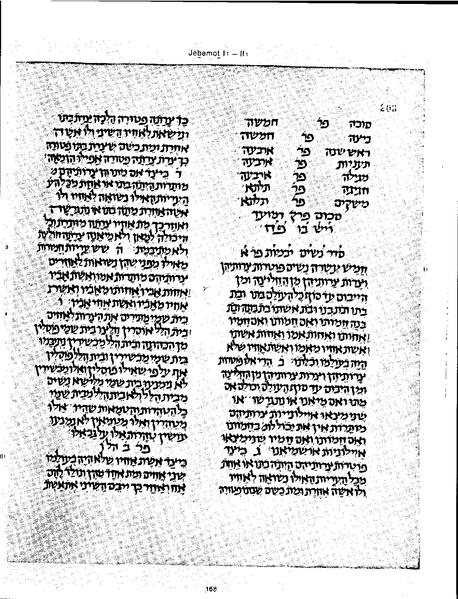 Jebamot I: – II:
203
סוכה פר׳ חמשה
ביצה פר׳ חמשה
ראש שנה פר׳ ארבעה
תעניות פר׳ ארבעה
מגילה פר׳ ארבעה
חגיגה פר׳ תלתא
משקים פר׳ תלתא
סכום פרק׳ דמועד
סדר נשים יבמות פר׳ א׳
חמש עשרה נשים פוטרות צרותיהן
וצרות צרותיהן מן החליצה ומן
הייבום עד סוף כל העולם בתו ובת
בתו ובת בנו ובת אשתו בת בתה ובת
בנה חמותו ואם חמותו ואם חמיו
אחותו ואחות אמו ואחות אשתו
ואשת אחיו מאמו ואשת אחיו שלא
היה בעולמו וכלתו ב הרי אלו פוטרות
צרותיהן וצרות צרותיהן מן החליצה
ומן הייבום עד סוף העולם וכולם אם
מתו ואם מיאנו או נתגרשו או
שנמצאו איילוניות צרותיהם
מותרות אין את יכול לומר בחמותו
ואם חמותו ואם חמיו שנימצאו
איילוניות או שמיאנו ג כיצד
פוטרות צרותיהם היתה בתו או אחת
מכל העריות האילו נשואה לאחיו
ולו אשה אחרת ומת כשם שבתו פטורה
כך צרתה פטורה הלכה צרת בתו
ונישאת לאחיו השיני ולו אשה
אחרת ומת כשם שצרת בתו פטורה
כך צרת צרתה פטורה אפילו הן מאה
ד כיצד אם מתו הן צרותיהם
מותרות היתה בתו או אחת מכל
העריות האילו נשואה לאחיו ולו
אשה אחרת מתה בתו או נתגרשה
ואחר כך מת אחיו צרתה מותרת כל
היכולה למאן ולא מיאנה צרתה חולצת
ולא מתיבמת ה שש עריות חמורות
מאילו מפני שהן נשואות לאחרים
צרותיהם מותרות אמו ואשת אביו
אחות אביו אחותו מאביו ואשת
אחיו מאביו ואשת אחי אביו ו
בית שמי מתירים את הצרות לאחים
ובית הלל אוסרין חלצו בית שמי פוסלין
מן הכהונה ובית הלל מכשירין נתיבמו
בית שמי מכשירין ובית הלל פוסלין
אף על פי שאילו פוסלין ואלו מכשירין
לא נמנעו בית שמי מלישא נשים
מבית הלל ולא בית הלל מבית שמי
כל הטהרות והטמאות שהיו אלו
מטהרין ואלו מטמאין לא נמנעו
עושין טהרות אלו על גב אלו
פר׳ ב׳
כיצד אשת אחיו שלא היה בעולמו
שני אחים ומת אחד מהן ונולד להם
אח ואחר כך ייבם השיני את אשת
168